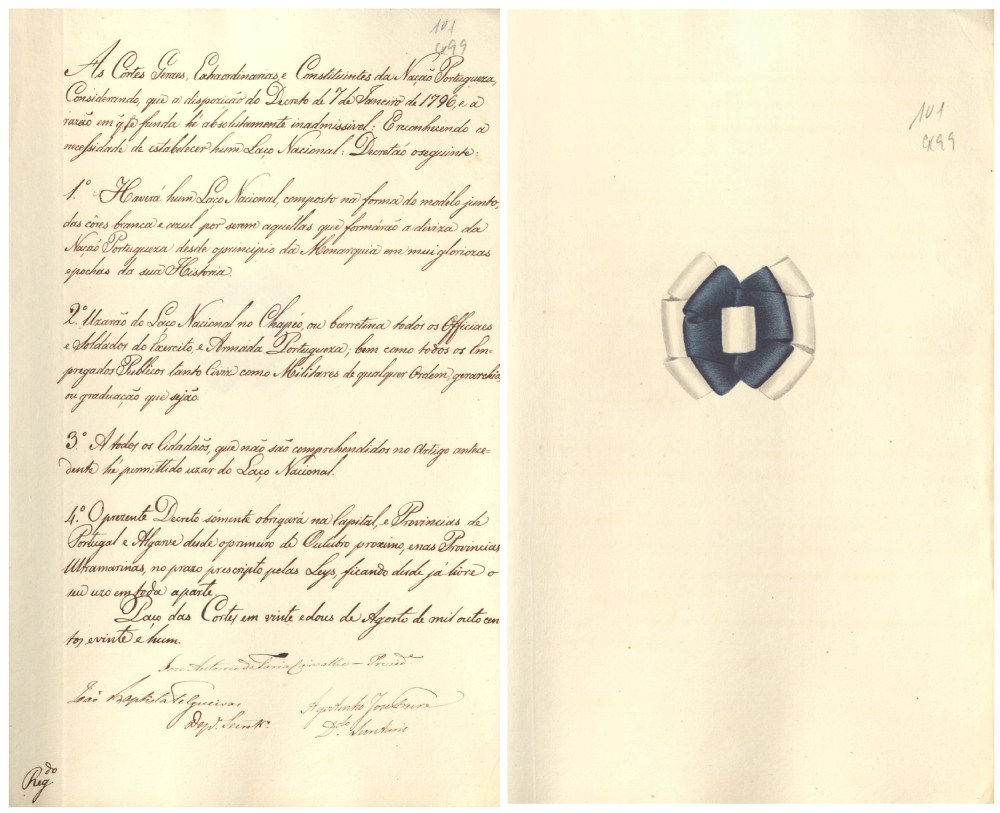 101
cx99
As Côrtes Geraes, Extraordinarias, e Constituintes da Nação Portugueza,
Considerando, que a disposição do Decreto de 7 de Janeiro de 1796, e a
razão em q̃ se funda hé absolutamente inadmissivel: Reconhecendo a
necessidade de estabelecer hum Laço Nacional: Decretão o seguinte:
1.º Haverá hum Laço Nacional, composto na forma do modelo junto,
das côres branca e azul por serem aquellas que formárão a diviza da
Nação Portugueza desde o principio da Monarquia em mui gloriozas
epochas da sua Historia.
2.º Uzarão do Laço Nacional no Chapéo, ou barretina todos os Officiaes
e Soldados do Exercito, e Armada Portugueza; bem como todos os Em-
pregados Publicos tanto Civis como Militares de qualquer Ordem, gerarchia,
ou graduação que sejão.
3.º A todos os Cidadãos, que não são comprehendidos no Artigo antece-
dente hé permittido uzar do Laço Nacional.
4.º O prezente Decreto sómente obrigará na Capital, e Provincias de
Portugal e Algarve desde o primeiro de Outubro proximo, e nas Provincias
Ultramarinas, no prazo prescripto pelas Leys, ficando desde já livre o
seu uzo em toda a parte.
Paço das Cortes em vinte e dous de Agosto de mil outo cen
tos e vinte e hum.
Jose Antonio de Faria Carvalho - Presid.e
João Baptista Felgueiras
Agostinho José Freire
Dep.do Secret.
D.do Secretario
Reg.do
101
cx99